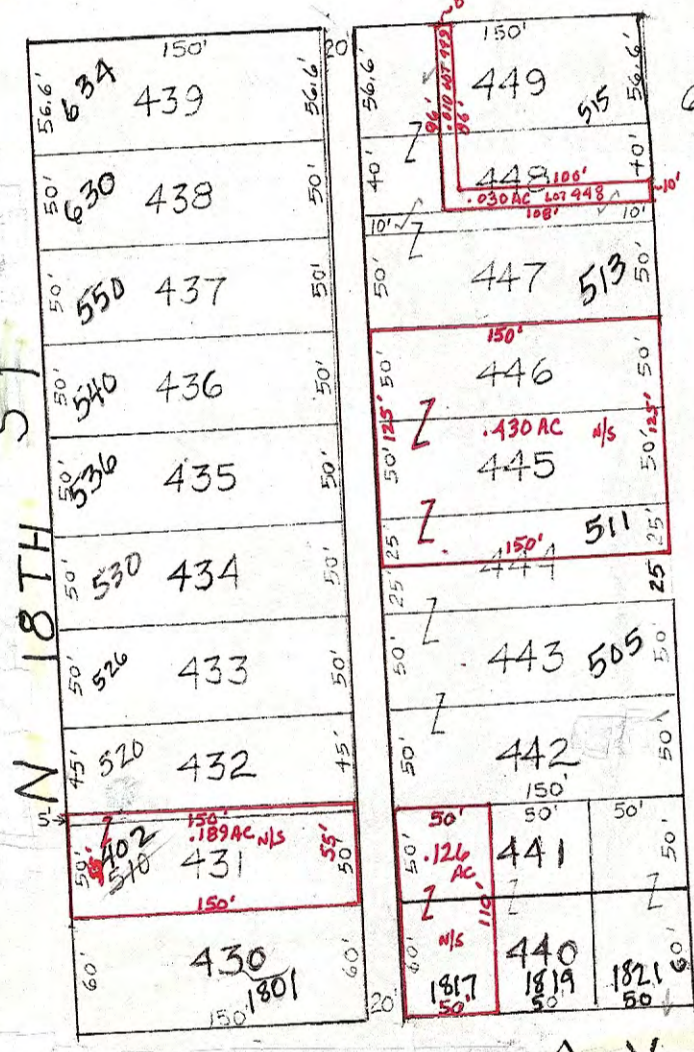 150'
56.6'
634
439
56.6'
50'
630
438
50'
50'
550
437
50'
50'
540
436
50'
50'
536
435
50'
50'
530
434
50'
50'
526
433
50'
45'
520
432
45'
5'
150'
.189 AC N/S
50'
402
510
431
55'
50'
150'
60'
430
1801
60'
150'
N 18TH ST
20'
150'
56.6'
449
515
56.6'
96'
.010 LOT 449
86'
40'
448
40'
100'
.030 AC LOT 448
10'
108'
10'
10'
50'
447
513
50'
150'
50'
446
50'
125'
.430 AC N/S
125'
50'
445
50'
25'
511
25'
150'
444
25'
25
50'
443
505
50'
50'
442
50'
150'
50'
50'
50'
50'
.126
AC
441
50'
110'
60'
N/S
440
60'
1817
1819
1821
50'
50'
50'
20'